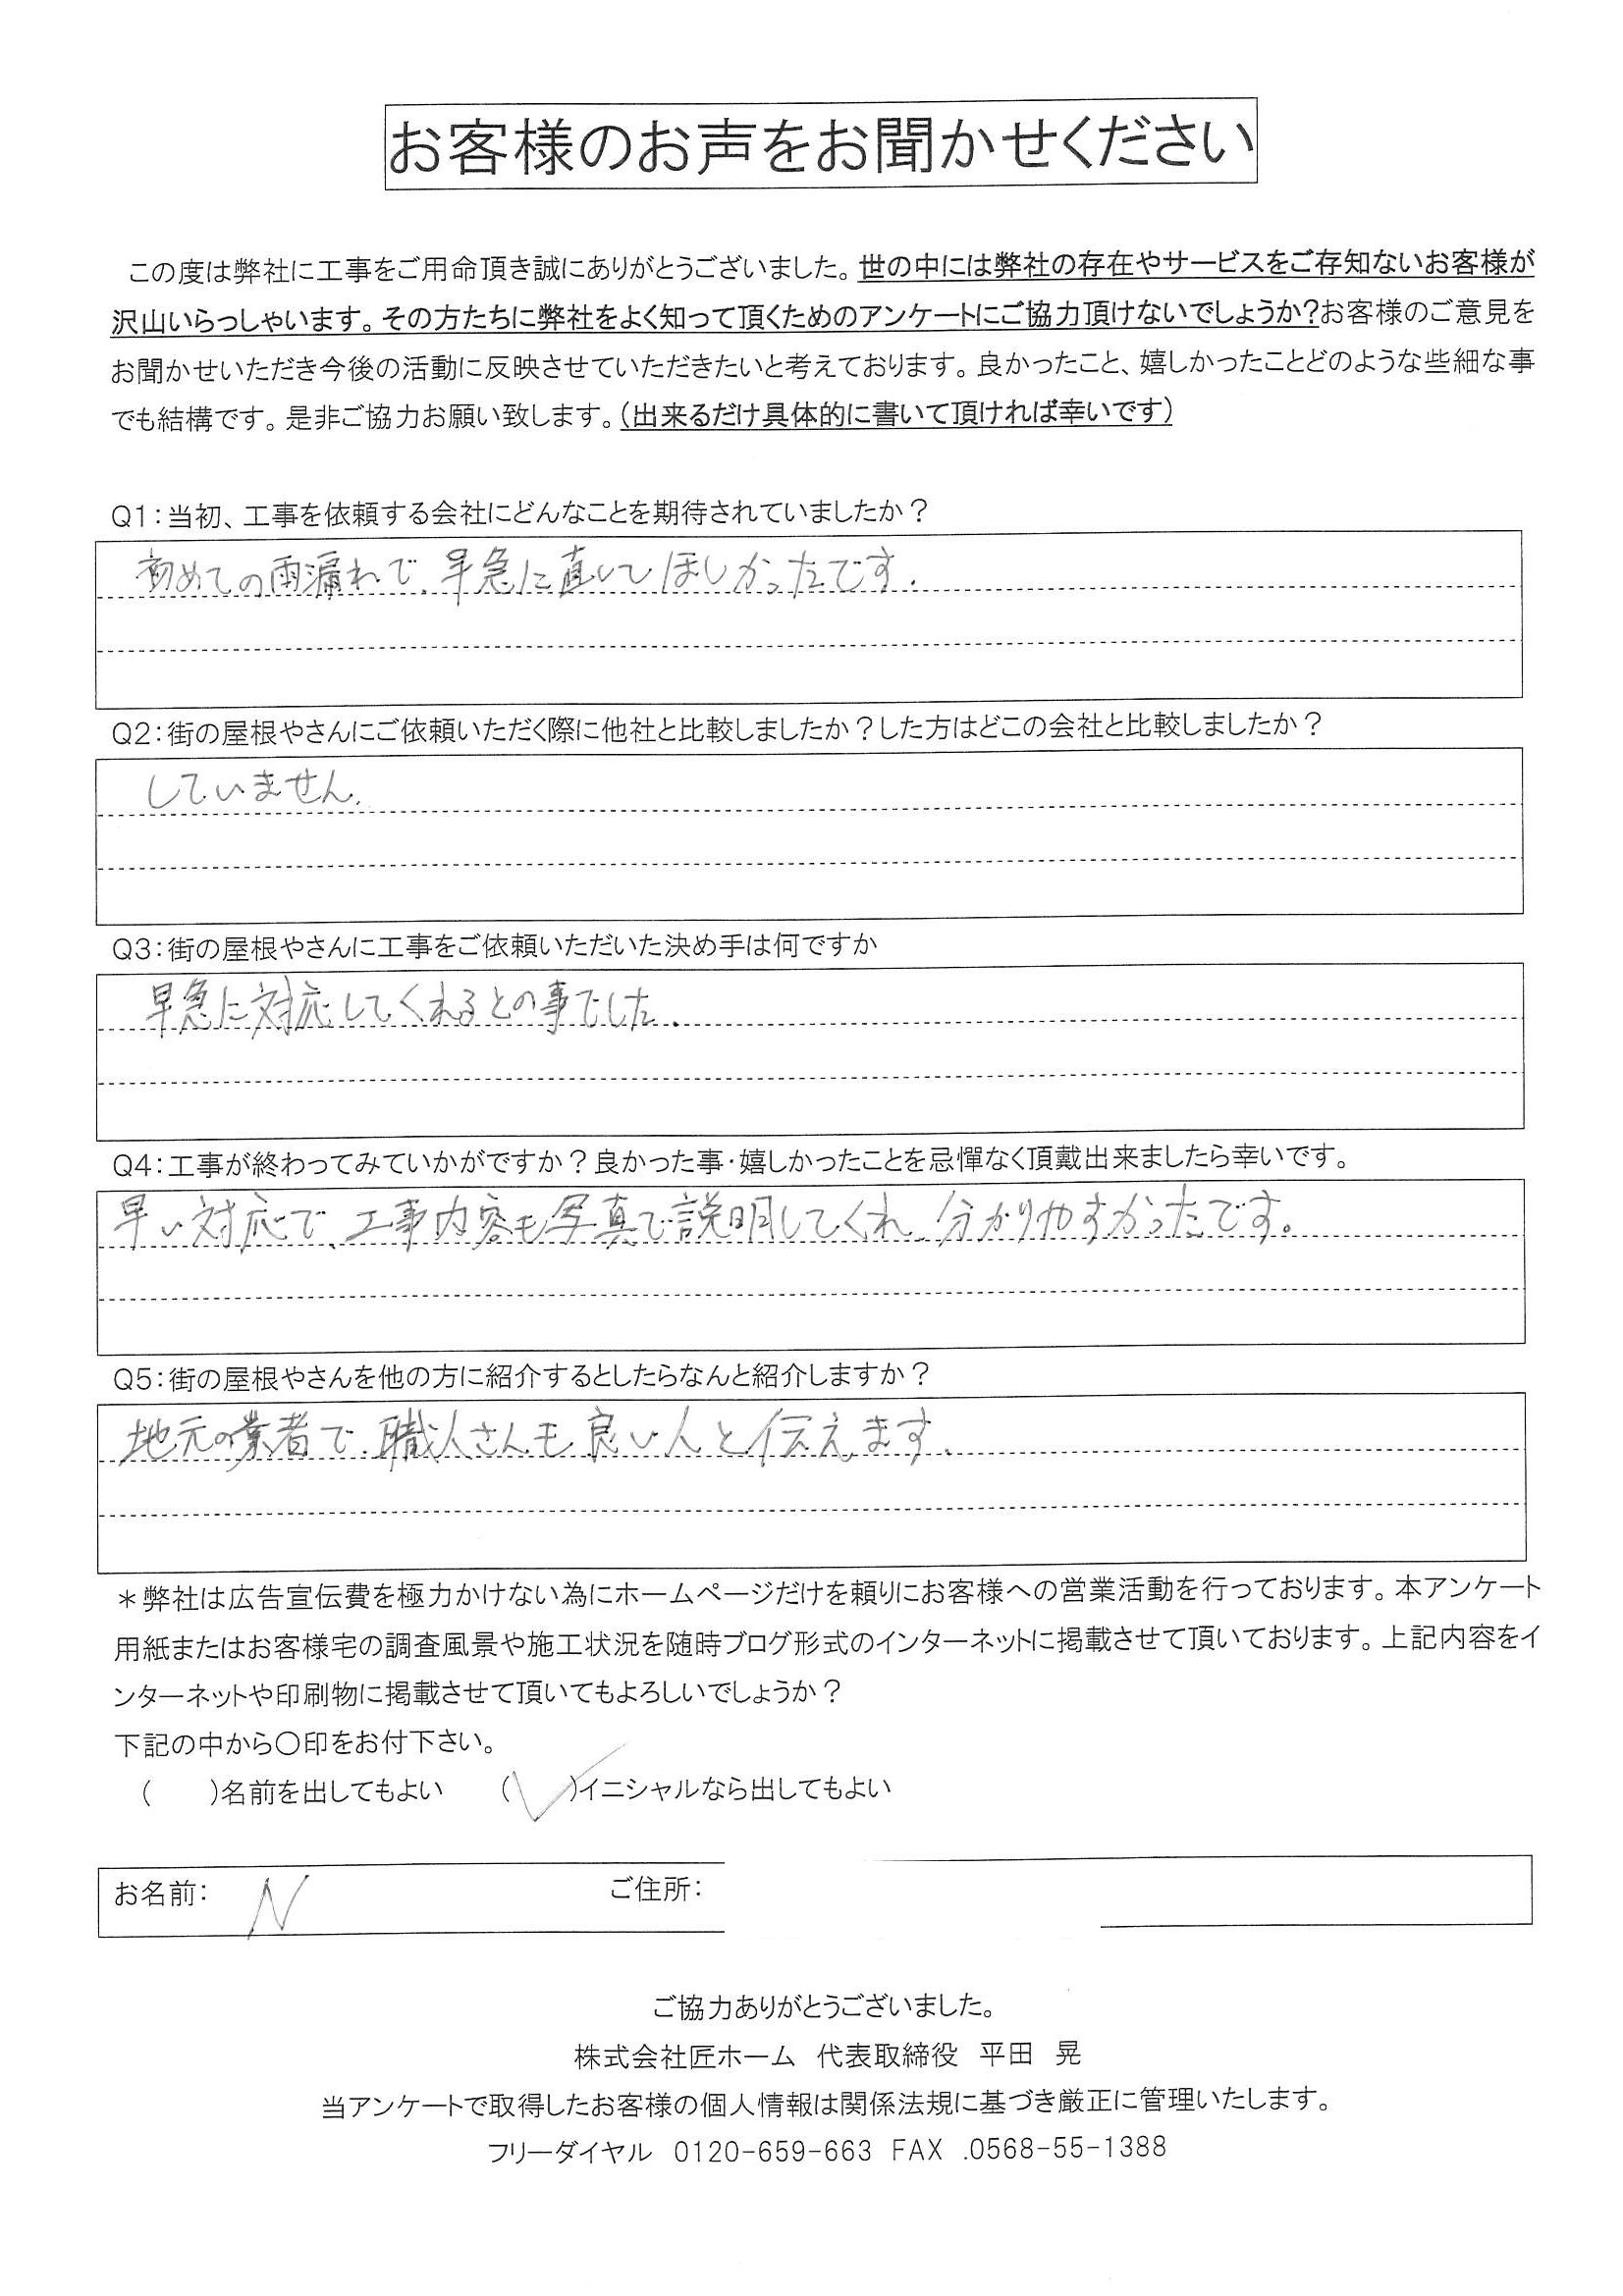 お客様のお声をお聞かせください
この度は弊社に工事をご用命頂き誠にありがとうございました。世の中には弊社の存在やサービスをご存知ないお客様が
沢山いらっしゃいます。その方たちに弊社をよく知って頂くためのアンケートにご協力頂けないでしょうか?お客様のご意見を
お聞かせいただき今後の活動に反映させていただきたいと考えております。良かったこと、嬉しかったことどのような些細な事
でも結構です。是非ご協力お願い致します。(出来るだけ具体的に書いて頂ければ幸いです)
Q1:当初、工事を依頼する会社にどんなことを期待されていましたか?
初めての雨漏れで、早急に直してほしかったです.
Q2:街の屋根やさんにご依頼いただく際に他社と比較しましたか?した方はどこの会社と比較しましたか?
していません.
Q3:街の屋根やさんに工事をご依頼いただいた決め手は何ですか
早急に対応してくれるとの事でした.
Q4:工事が終わってみていかがですか?良かった事・嬉しかったことを忌憚なく頂戴出来ましたら幸いです。
早い対応で、工事内容も写真で説明してくれ、分かりやすかったです。
Q5:街の屋根やさんを他の方に紹介するとしたらなんと紹介しますか?
地元の業者で、職人さんも良い人と伝えます.
*弊社は広告宣伝費を極力かけない為にホームページだけを頼りにお客様への営業活動を行っております。本アンケート
用紙またはお客様宅の調査風景や施工状況を随時ブログ形式のインターネットに掲載させて頂いております。上記内容をイ
ンターネットや印刷物に掲載させて頂いてもよろしいでしょうか?
下記の中から○印をお付下さい。
( )名前を出してもよい (✓)イニシャルなら出してもよい
お名前: N ご住所:
ご協力ありがとうございました。
株式会社匠ホーム 代表取締役 平田 晃
当アンケートで取得したお客様の個人情報は関係法規に基づき厳正に管理いたします。
フリーダイヤル 0120-659-663 FAX .0568-55-1388